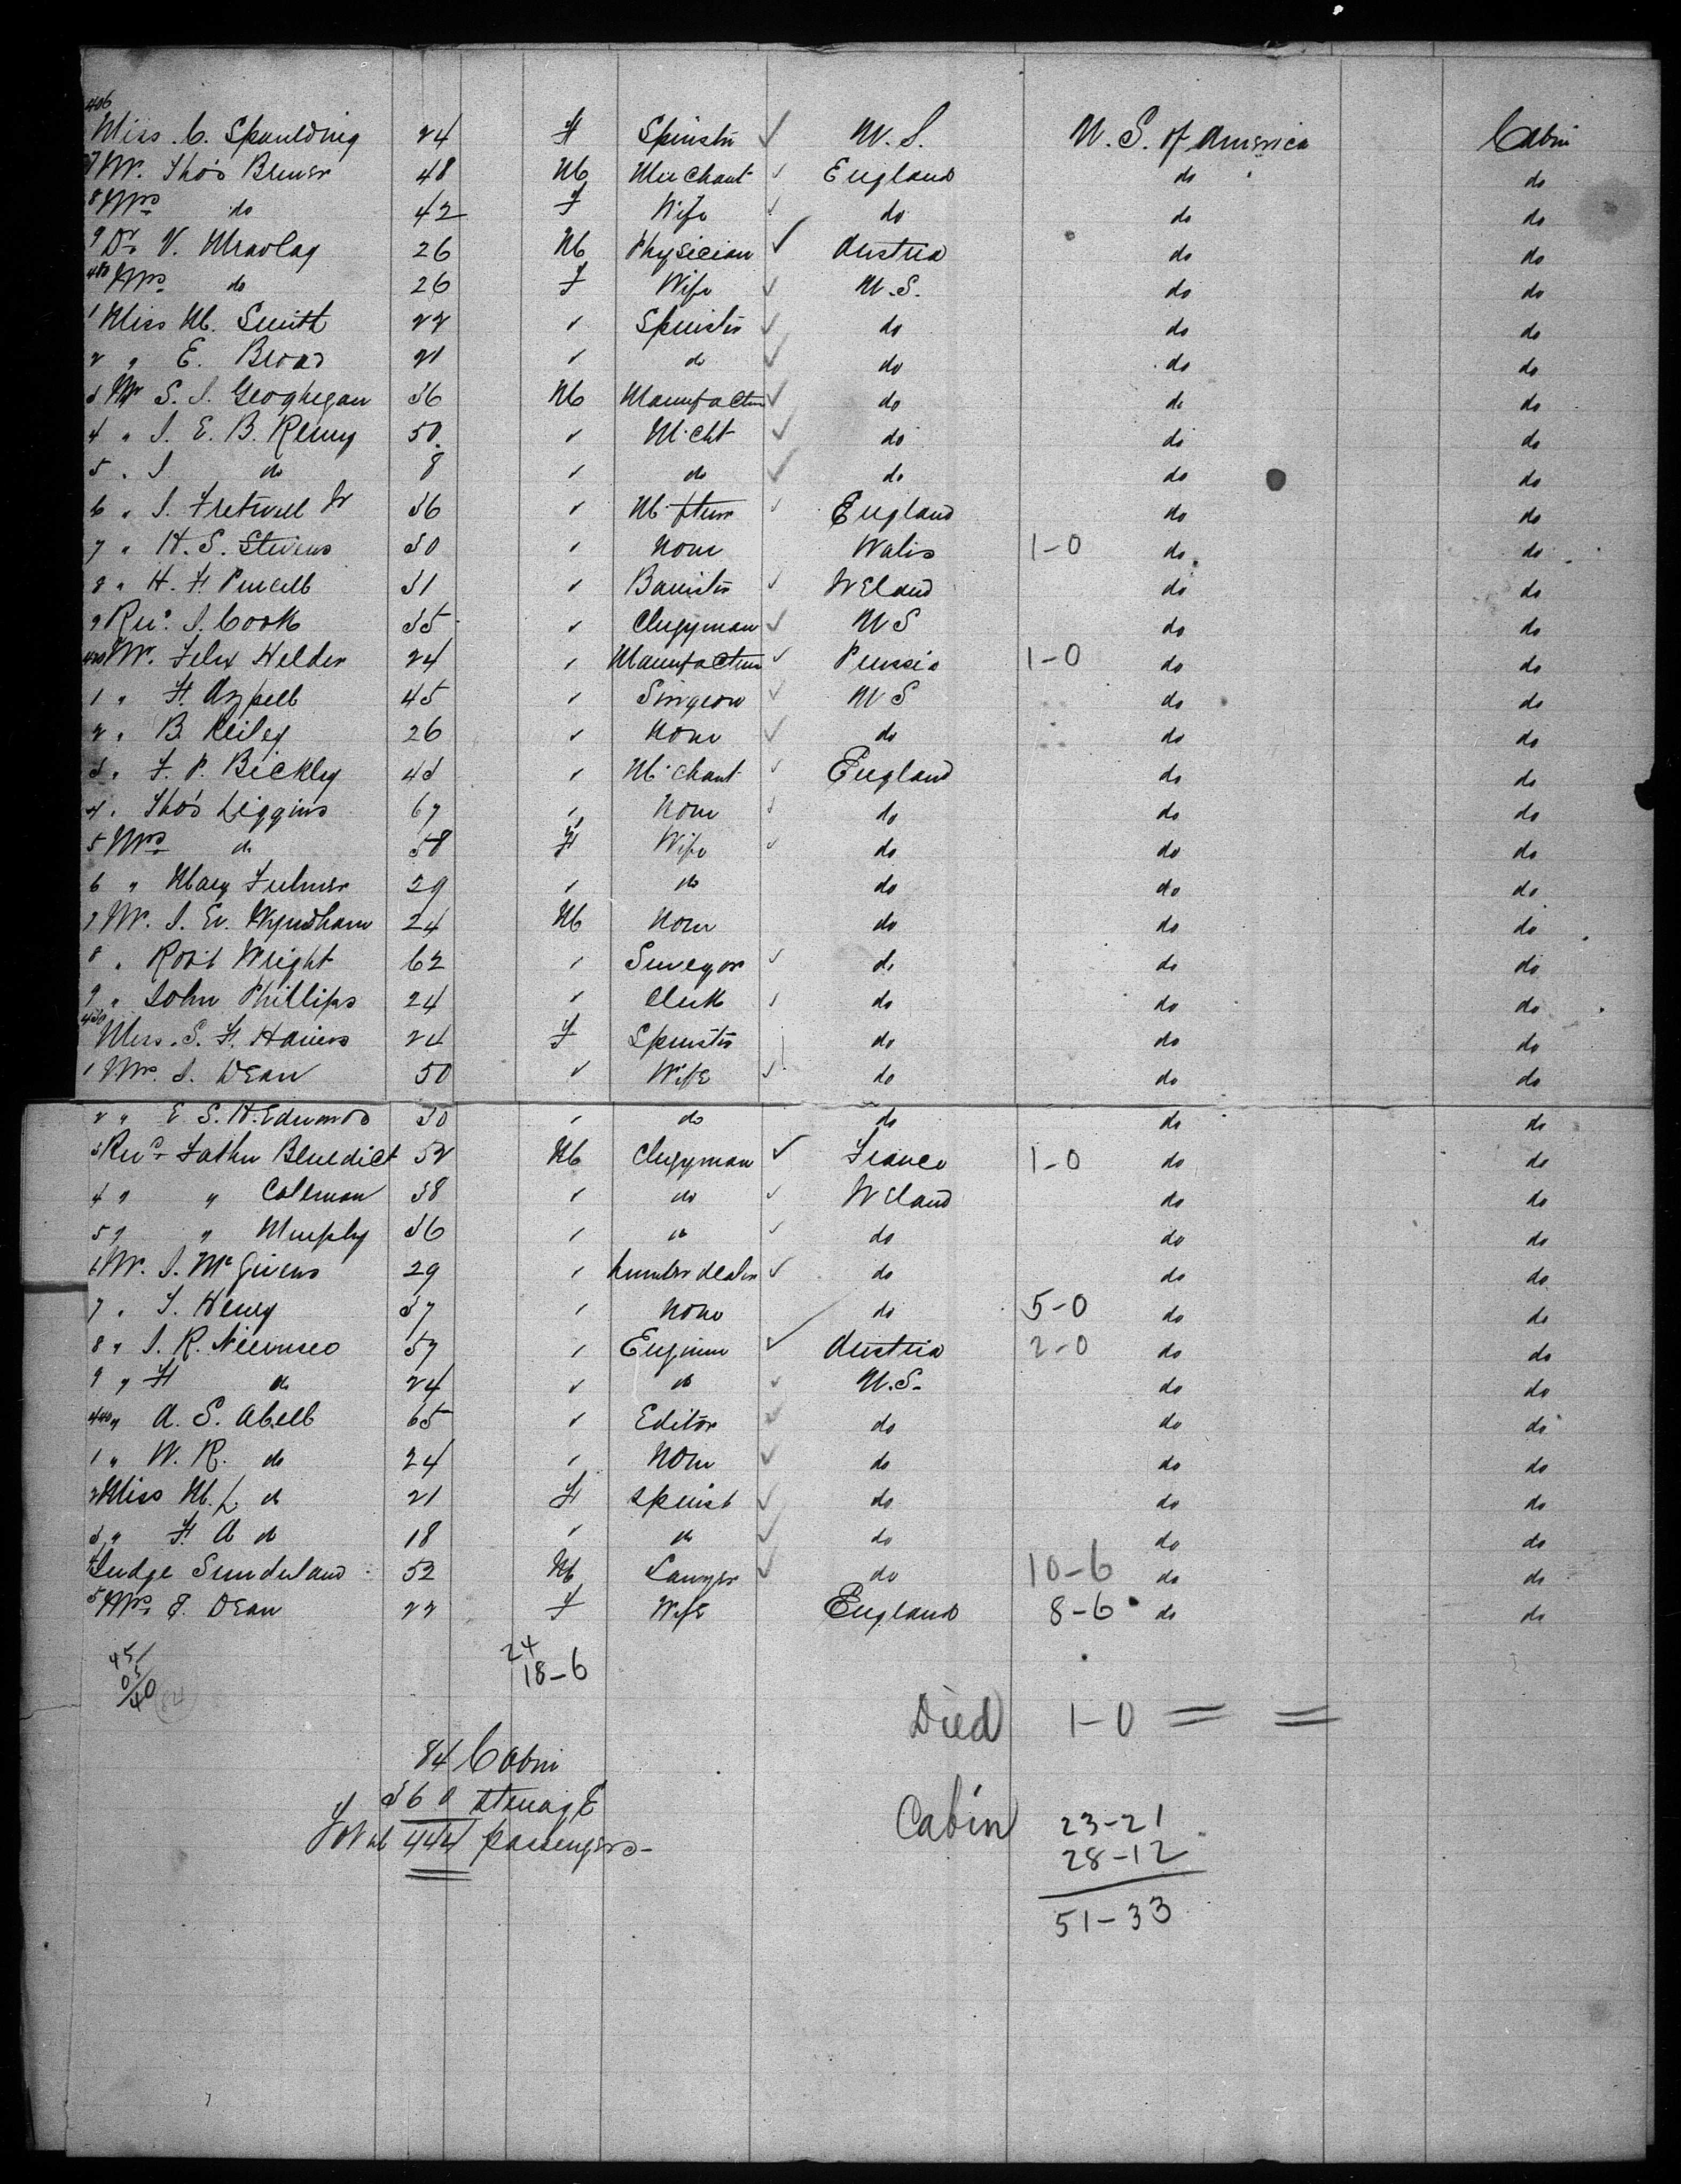 406 Miss. C. Spaulding 24 F Spinstr U.S. U.S. of America Cabin
7 Mr. Tho's Bruner 48 M Merchant England do do
8 Mrs do 42 F Wife do do do
9 Dr V. 26 M Physician Austria do do
Mrs do 26 F Wife U.S. do do
1 Miss M. Smith 22 " Spinster do do do
2 " E. Broad 21 " do do do do
3 Mr S. J. Geoghegan 36 M Manufactur do do do
4 " J. E. B. Remy 50 " Mcht do do do
5 " J do 8 " do do do do
6 " J. Fretwell Jr 36 " M.fturr England do do
7 " H. S. Stevens 30 " None Wales 1-0 do do
8 " H. F. Purcell 31 " Barrister Ireland do do
9 Rev. J. Cook 35 " Clergyman US do do
420 Mr. Felix Helder 24 " Manufactur Prussia 1-0 do do
1 " F. Azpell 45 " Surgeon US do do
2 " B. Reiley 26 " None do do do
3 " F. P. Bickley 43 " M.chant England do do
4 " Tho's Liggins 67 " None do do do
5 Mrs do 58 F Wife do do do
6 " Mary Fulmer 29 " do do do do
7 Mr. J. Ev. Wyndham 24 M None do do do
8 " Robt Wright 62 " Surveyor do do do
9 " John Phillips 24 " Clerk do do do
430 Miss. S. F. Haines 24 F Spinster do do do
1 Mrs. J. Dean 50 " Wife do do do
2 " E. S. H. Edwards 30 " do do do do
3 Revd Father Benedict 52 M Clergyman France 1-0 do do
4 " " Coleman 38 " do Ireland do do
5 " " Murphy 36 " do do do do
6 Mr. J. McGivens 29 " Lumber dealer do do do
7 " J. Henry 37 " None do 5-0 do do
8 " J. R. 57 " Engineer Austria 2-0 do do
9 " F do 24 " do U.S. do do
440 " A. S. Abell 65 " Editor do do do
1 " W. R. do 24 " None do do do
2 Miss M. L do 21 F Spinst do do do
3 " F A do 18 " do do do do
4 Judge Sunderland 52 M Lawyer do 10-6 do do
5 Mrs. J. Dean 22 F Wife England 8-6 do do
451 24
05 18-6
40 (84)
Died 1-0 = =
84 Cabin
360 Steerage
Total 444 passengers-
Cabin 23-21
28-12
51-33